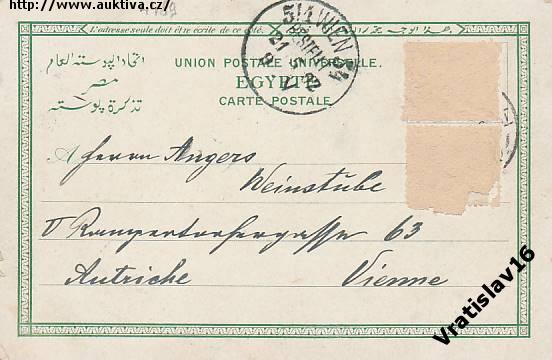 http://www.auktiva.cz/
L'adresse seule doit être écrite de ce côté.
5/1 WIEN 51
BESTELLT
UNION POSTALE UNIVERSELLE.
EGYPTE
CARTE POSTALE
اتحاد البوسته العام
مصر
تذكرة بوسته
A Herrn Angers
Weinstube
V Rampertorfergasse 63
Autriche Vienne
Vratislav16